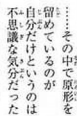 ……その中で原形を
留めているのが
自分だけというのは
不思議な気分だった